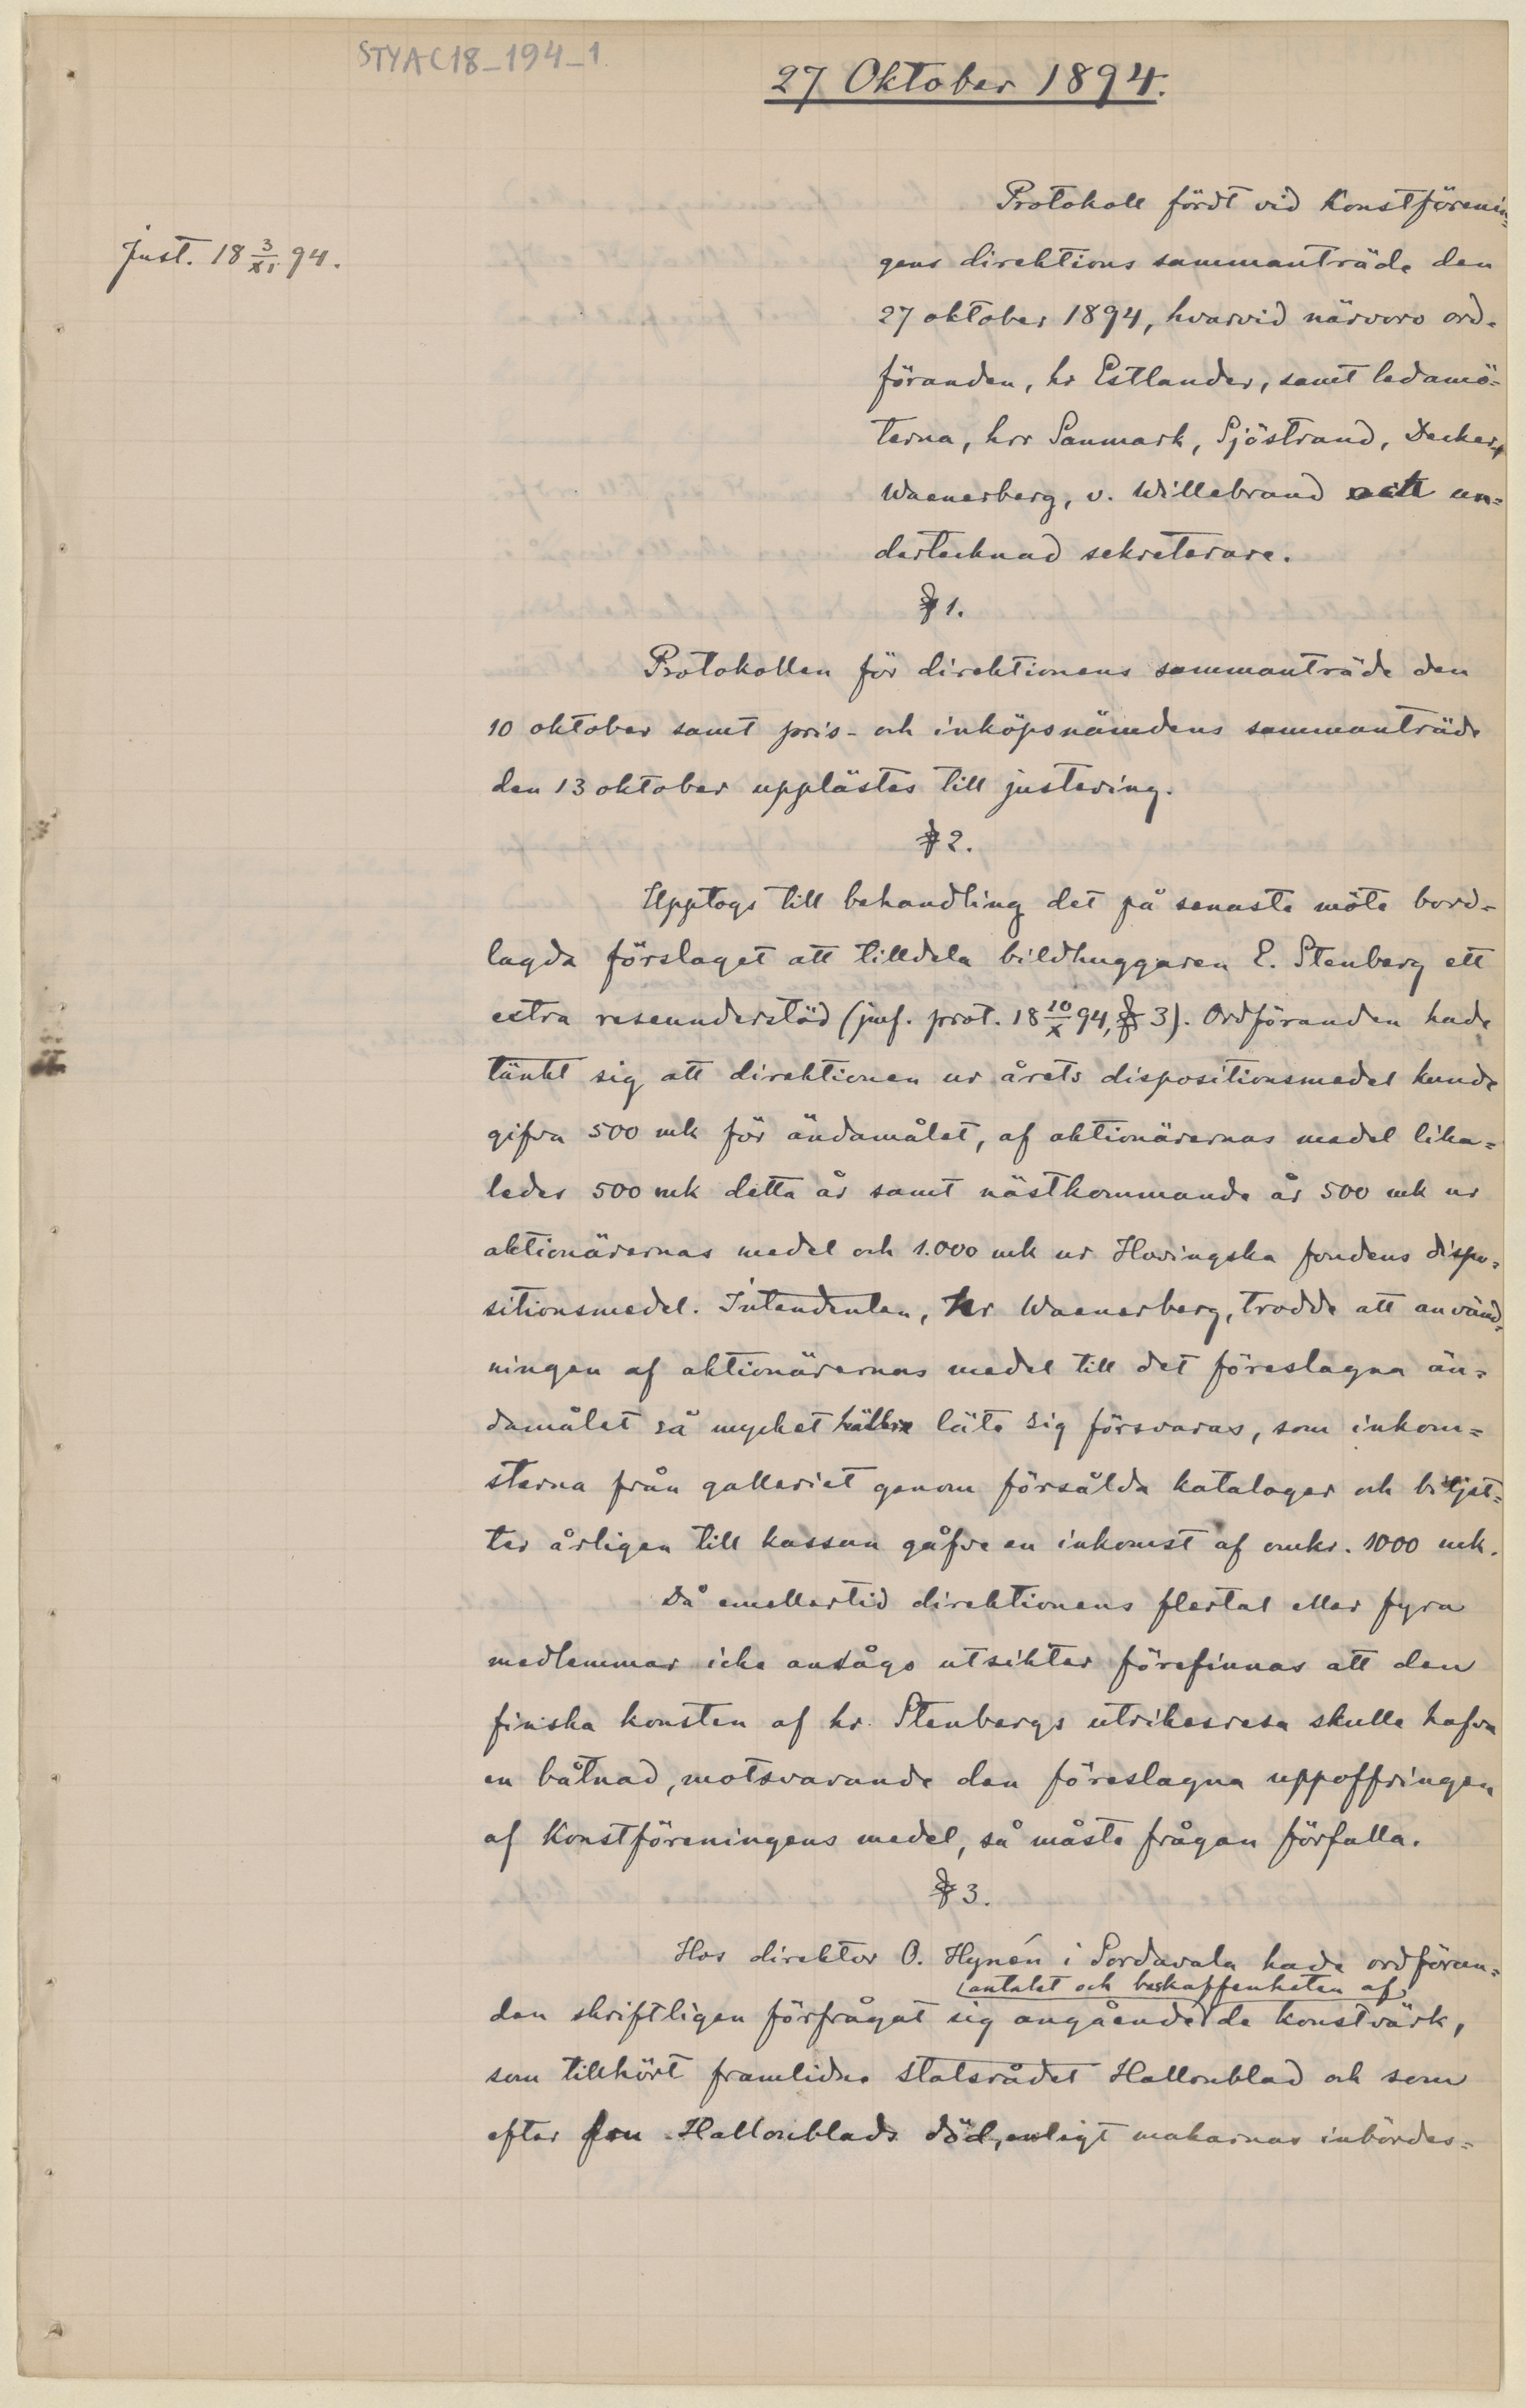 STYAC18_194_1
27 Oktober 1894.
Just. 18 3/XI 94.
Protokoll fördt vid Konstförenin=
gens direktions sammanträde den
27 oktober 1894, hvarvid närvoro ord-
föranden, hr Estlander, samt ledamö-
terna, hrr Sanmark, Sjöstrand, Decker,
Waenerberg, v. Willebrand och un=
dertecknad sekreterare.
§ 1.
Protokollen för direktionens sammanträde den
10 oktober samt pris- och inköpsnämdens sammanträde
den 13 oktober upplästes till justering.
§ 2.
Upptogs till behandling det på senaste möte bord-
lagda förslaget att tilldela bildhuggaren E. Stenberg ett
extra reseunderstöd (jmf. prot. 18 10/X 94, § 3). Ordföranden hade
tänkt sig att direktionen ur årets dispositionsmedel kunde
gifva 500 mk för ändamålet, af aktionärernas medel lika=
ledes 500 mk detta år samt nästkommande år 500 mk ur
aktionärernas medel och 1.000 mk ur Hovingska fondens dispo=
sitionsmedel. Intendenten, hr Waenerberg, trodde att använd=
ningen af aktionärernas medel till det föreslagna än=
damålet så mycket hällre läte sig försvaras, som inkom=
sterna från galleriet genom försålda kataloger och biljet=
ter årligen till kassan gåfve en inkomst af omkr. 1000 mk.
Då emellertid direktionens flertal eller fyra
medlemmar icke ansågo utsikter förefinnas att den
finska konsten af hr. Stenbergs utrikesresa skulle hafva
en båtnad, motsvarande den föreslagna uppoffringen
af Konstföreningens medel, så måste frågan förfalla.
§ 3.
Hos direktor O. Hynén i Sordavala hade ordföran=
antalet och beskaffenheten af
den skriftligen förfrågat sig angående de konstvärk,
som tillhört framlidne statsrådet Hallonblad och som
efter fru Hallonblads död, enligt makarnas inbördes=